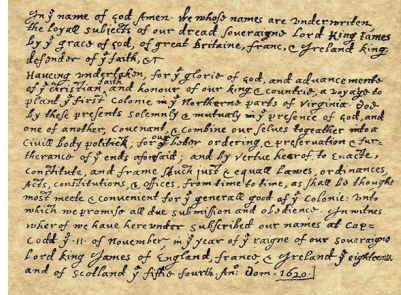 In yͤ name of god Amen. We whose names are underwriten,
the loyall subjects of our dread soveraigne Lord King James
by yͤ grace of god, of great Britaine, franc, & Ireland king,
defender of yͤ faith, &c
Haveing undertaken, for yͤ glorie of god, and advancemente
of yͤ christian faith and honour of our king & countrie, a voyage to
plant yͤ first Colonie in yͤ Northerne parts of Virginia. Doe
by these presents solemnly & mutualy in yͤ presence of god, and
one of another, Covenant, & Combine our selves togeather into a
Civill body politick, for our better ordering, & preservation & fur-
therance of yͤ ends aforesaid; and by vertue hearof to Enacte,
Constitute, and frame shuch just & equall Lawes, ordinances,
Acts, constitutions, & offices, from time to time, as shall be thought
most meete & convenient for yͤ generall good of yͤ Colonie: unto
which we promise all due submission and obedience. In witnes
wherof we have hereunder subscribed our names at Cap=
Codd yͤ ·11· of November, in yͤ year of yͤ raigne of our soveraigne
Lord king James of England, franc, & Ireland yͤ eighteenth
and of Scotland yͤ fiftie fourth. Anͦ: Dom. 1620.